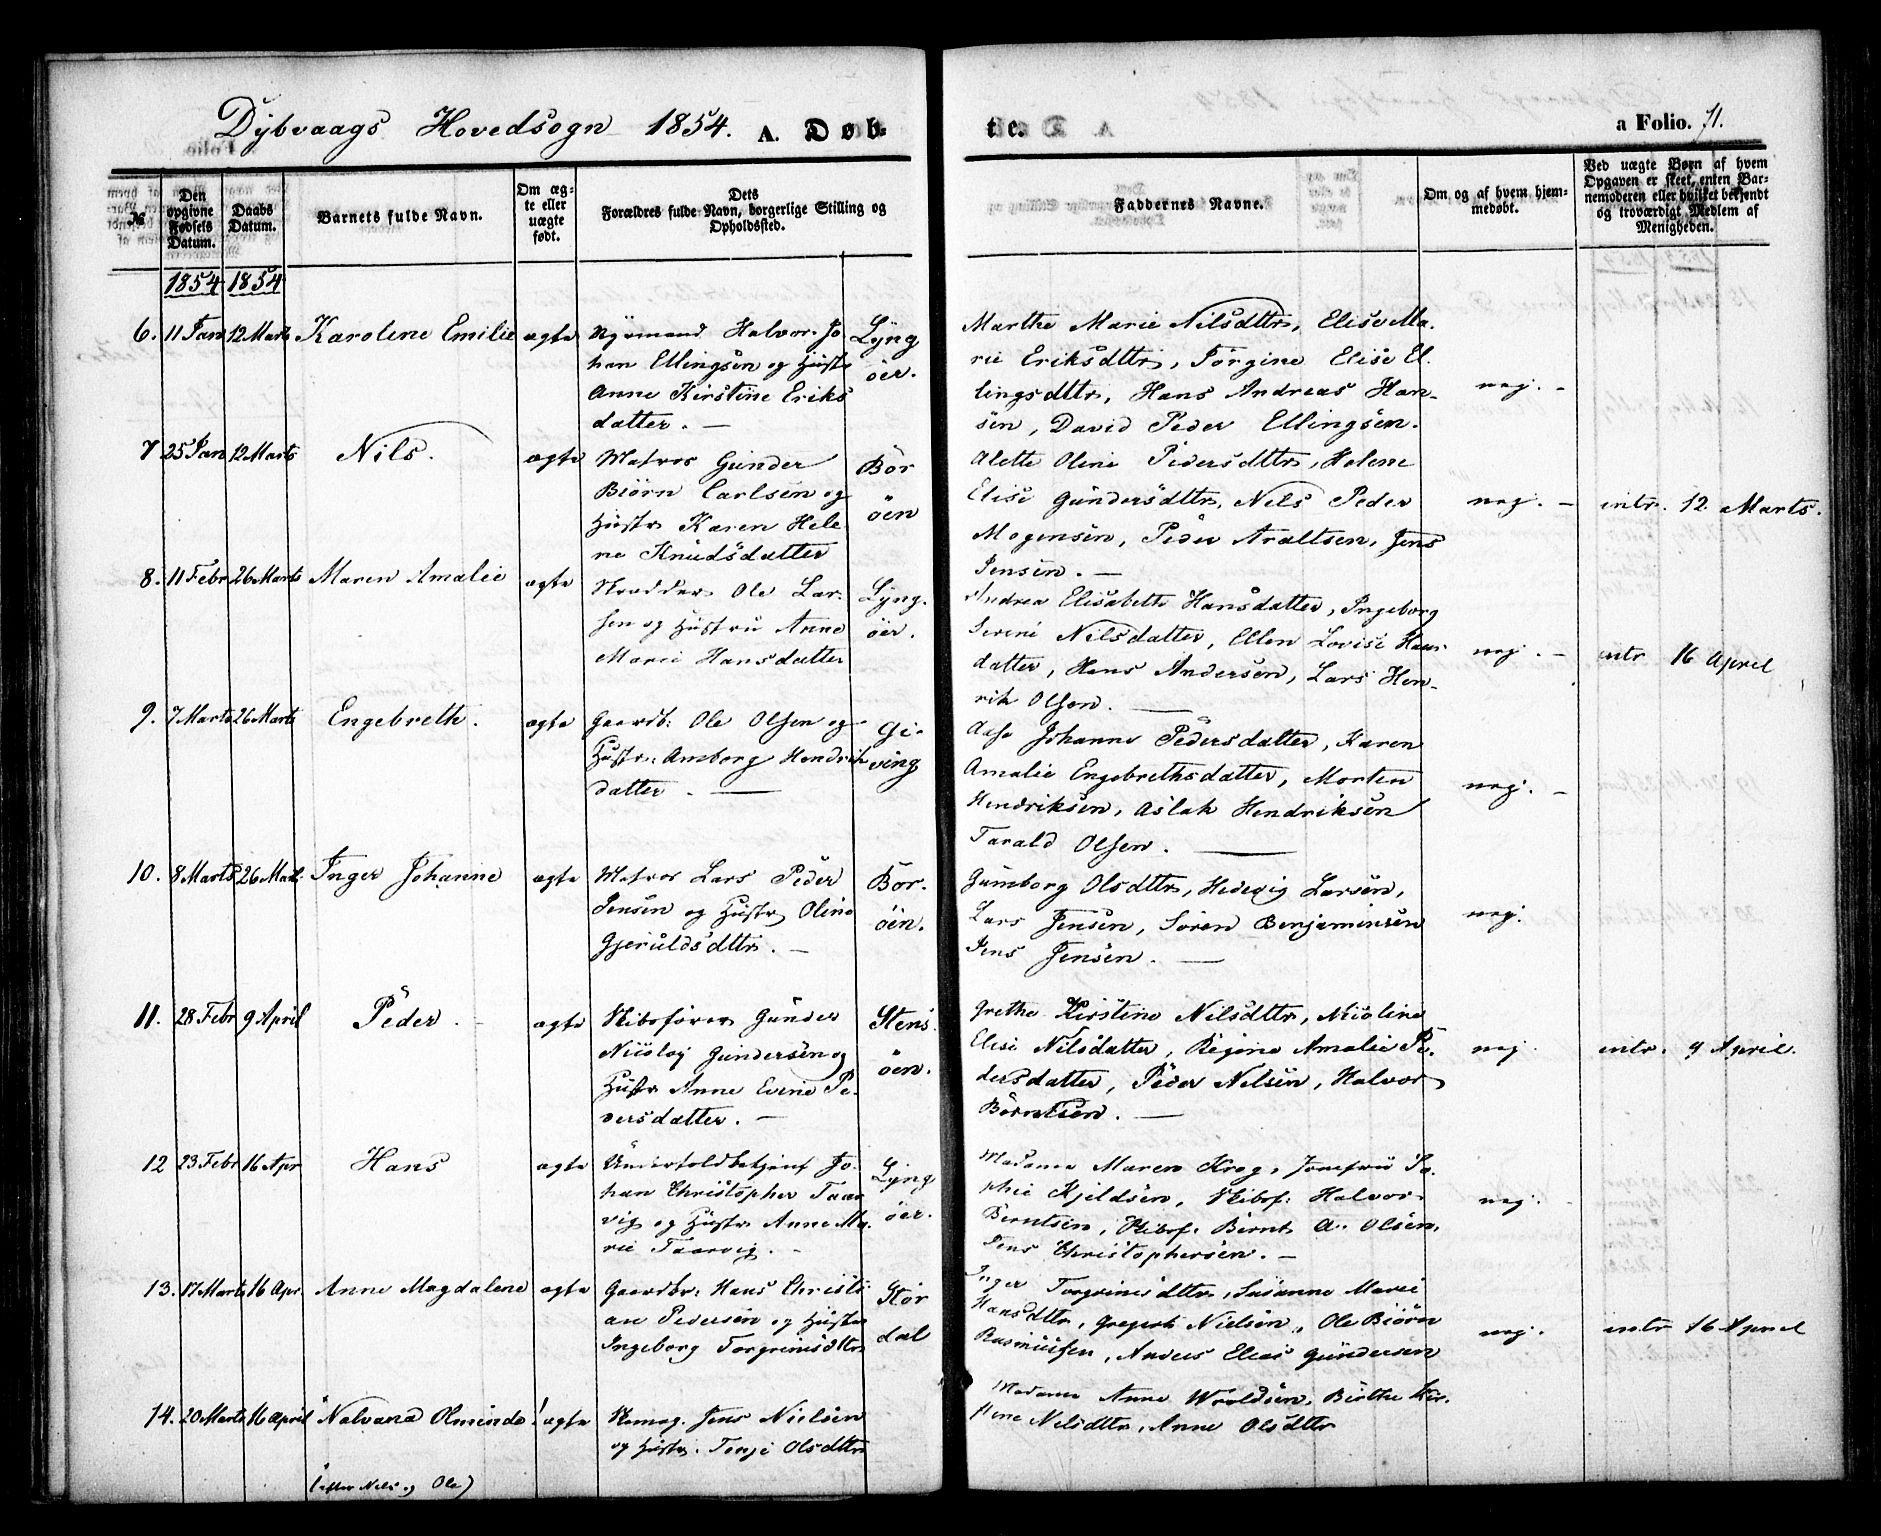 Dybvaags Hovedsogn 1854. A. Døb-
te. a Folio. 71.
№
Den opgivne Fødsels Datum.
Daabs Datum.
Barnets fulde Navn.
Om ægte eller uægte født.
Dets Forældres fulde Navn, borgerlige Stilling og Opholdssted.
Faddernes Navne.
Om og af hvem hjemmedøbt.
Ved uægte Børn af hvem Opgaven er skeet, enten Barnemoderen eller hvilket bekjendt og troværdigt Medlem af Menigheden.
1854 1854
6. 11 Jan 12 Marts Karolene Emilie ægte
Halvor Jo
han Ellingsen og Hustr
Anne Kirstine Eriks
datter. —
Lyng
öer.
Marthe Marie Nilsdttr, Elise Ma-
rie Eriksdttr, Torgine Elise El-
lingsdttr, Hans Andreas Han-
sen, David Peder Ellingsen.
nej. –
7 25 Jan 12 Marts Nils. ægte
Matros Gunder
Biörn Carlsen og
Hustr Karen Hele
ne Knudsdatter
Bör
öen
Alette Oline Pedersdttr, Helene
Elise Gundersdttr, Nels Peder
Mogensen, Peder Araltsen, Jens
Jensen. —
nej. –
intr. 12 Marts.
8. 11 Febr 26 Marts Maren Amalie ægte
Skrædder Ole Lar-
sen og Hustru Anne
Marie Hansdatter
Lyng.
öer.
Andrea Elisabeth Hansdatter, Ingeborg
Serine Nilsdatter, Ellen Lovise Hans
datter, Hans Andersen, Lars Hen-
rik Olsen. —
nej. –
intr 16 April
9. 7 Marts 26 Marts Engebreth. ægte
Gaardb: Ole Olsen og
Hustr: Amborg Hendrik
datter. —
Gi-
ving
Aase Johanne Pedersdatter, Karen
Amalie Engebrethsdatter, Morten
Hendriksen, Aslak Hendriksen
Tarald Olsen. —
nej. –
10. 8 Marts 26 Mar. Inger Johanne ægte
Matros Lars Peder
Jensen og Hustr Oline
Gjeruldsdttr. —
Bör.
öen.
Gumborg Olsdttr, Hedevig Larsen,
Lars Jensen, Sören Benjaminsen
Jens Jensen. —
nej.
11. 28 Febr 9 April Peder. ægte
Skibsförer Gunder
Nicolay Gundersen og
Hustr Anne Evine Pe-
dersdatter. —
Stens
öen.
Grethe Kirstine Nilsdttr, Nicoline
Elise Nilsdatter, Regine Amalie Pe-
dersdatter, Peder Nilsen, Halvor
Börntsen. —
nej.
intr. 9 April.
12 23 Febr 16 Apr Hans ægte
Undertoldbetjent Jo-
han Christopher Taar
vig og Hustr Anne Ma-
rie Taarvig. –
Lyng
öer.
Madame Maren Krog, Jomfru So-
phie Kjeldsen, Skibsf: Halvor
Berntsen, Skibsf. Bernt A. Olsen,
Jens Christophersen. –
nej.
13. 17 Marts 16 Apr. Anne Magdalene ægte
Gaardbr: Hans Christi
an Pedersen og Hustr
Ingeborg Torgrimsdttr
Stör
dal
Inger Torgrimsdttr, Susanne Marie
Hansdttr, Gregert Nielsen, Ole Biörn
Rasmussen, Anders Elias Gundersen
nej.
intr 16 April
14. 20 Marts 16 April Nalvana Olminde ! ægte
Jens Nielsen
og Hustr. Olsdttr
Madame Anne Wroldsen, Birthe Kir-
stine Nilsdttr, Anne Olsdttr
(efter Nils og Ole)